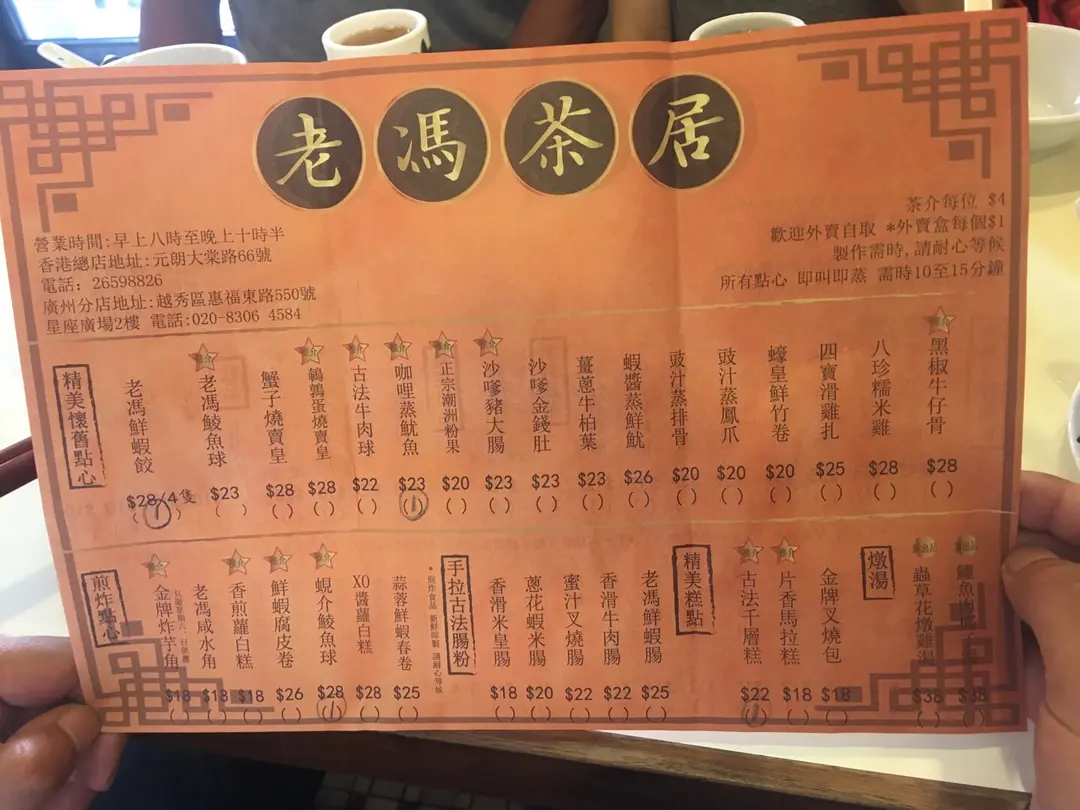 老馮茶居
營業時間:早上八時至晚上十時半
香港總店地址:元朗大棠路66號
電話: 26598826
廣州分店地址:越秀區惠福東路550號
星座廣場2樓 電話:020-8306 4584
茶介每位 $4
歡迎外賣自取 *外賣盒每個$1
製作需時,請耐心等候
所有點心 即叫即蒸 需時10至15分鐘
精美懷舊點心
老馮鮮蝦餃 $28/4隻 (1)
推介 老馮鯪魚球 $23 ( )
蟹子燒賣皇 $28 ( )
推介 鵪鶉蛋燒賣皇 $28 ( )
推介 古法牛肉球 $22 ( )
推介 咖哩蒸魷魚 $23 (1)
推介 正宗潮洲粉果 $20 ( )
推介 沙嗲豬大腸 $23 ( )
沙嗲金錢肚 $23 ( )
薑蔥牛柏葉 $23 ( )
蝦醬蒸鮮魷 $26 ( )
豉汁蒸排骨 $20 ( )
豉汁蒸鳳爪 $20 ( )
蠔皇鮮竹卷 $20 ( )
四寶滑雞扎 $25 ( )
八珍糯米雞 $28 ( )
推介 黑椒牛仔骨 $28 ( )
煎炸點心
推介 金牌炸芋角 $18 ( )
老馮咸水角 $18 ( )
推介 香煎蘿白糕 $18 ( )
推介 鮮蝦腐皮卷 $26 ( )
推介 蜆介鯪魚球 $28 (1)
XO醬蘿白糕 $28 ( )
蒜蓉鮮蝦春卷 $25 ( )
手拉古法腸粉
香滑米皇腸 $18 ( )
蔥花蝦米腸 $20 ( )
蜜汁叉燒腸 $22 ( )
香滑牛肉腸 $22 ( )
老馮鮮蝦腸 $25 ( )
精美糕點
推介 古法千層糕 $22 (1)
推介 片香馬拉糕 $18 ( )
金牌叉燒包 $18 ( )
燉湯
蟲草花燉雞湯 $38 ( )
$38 ( )